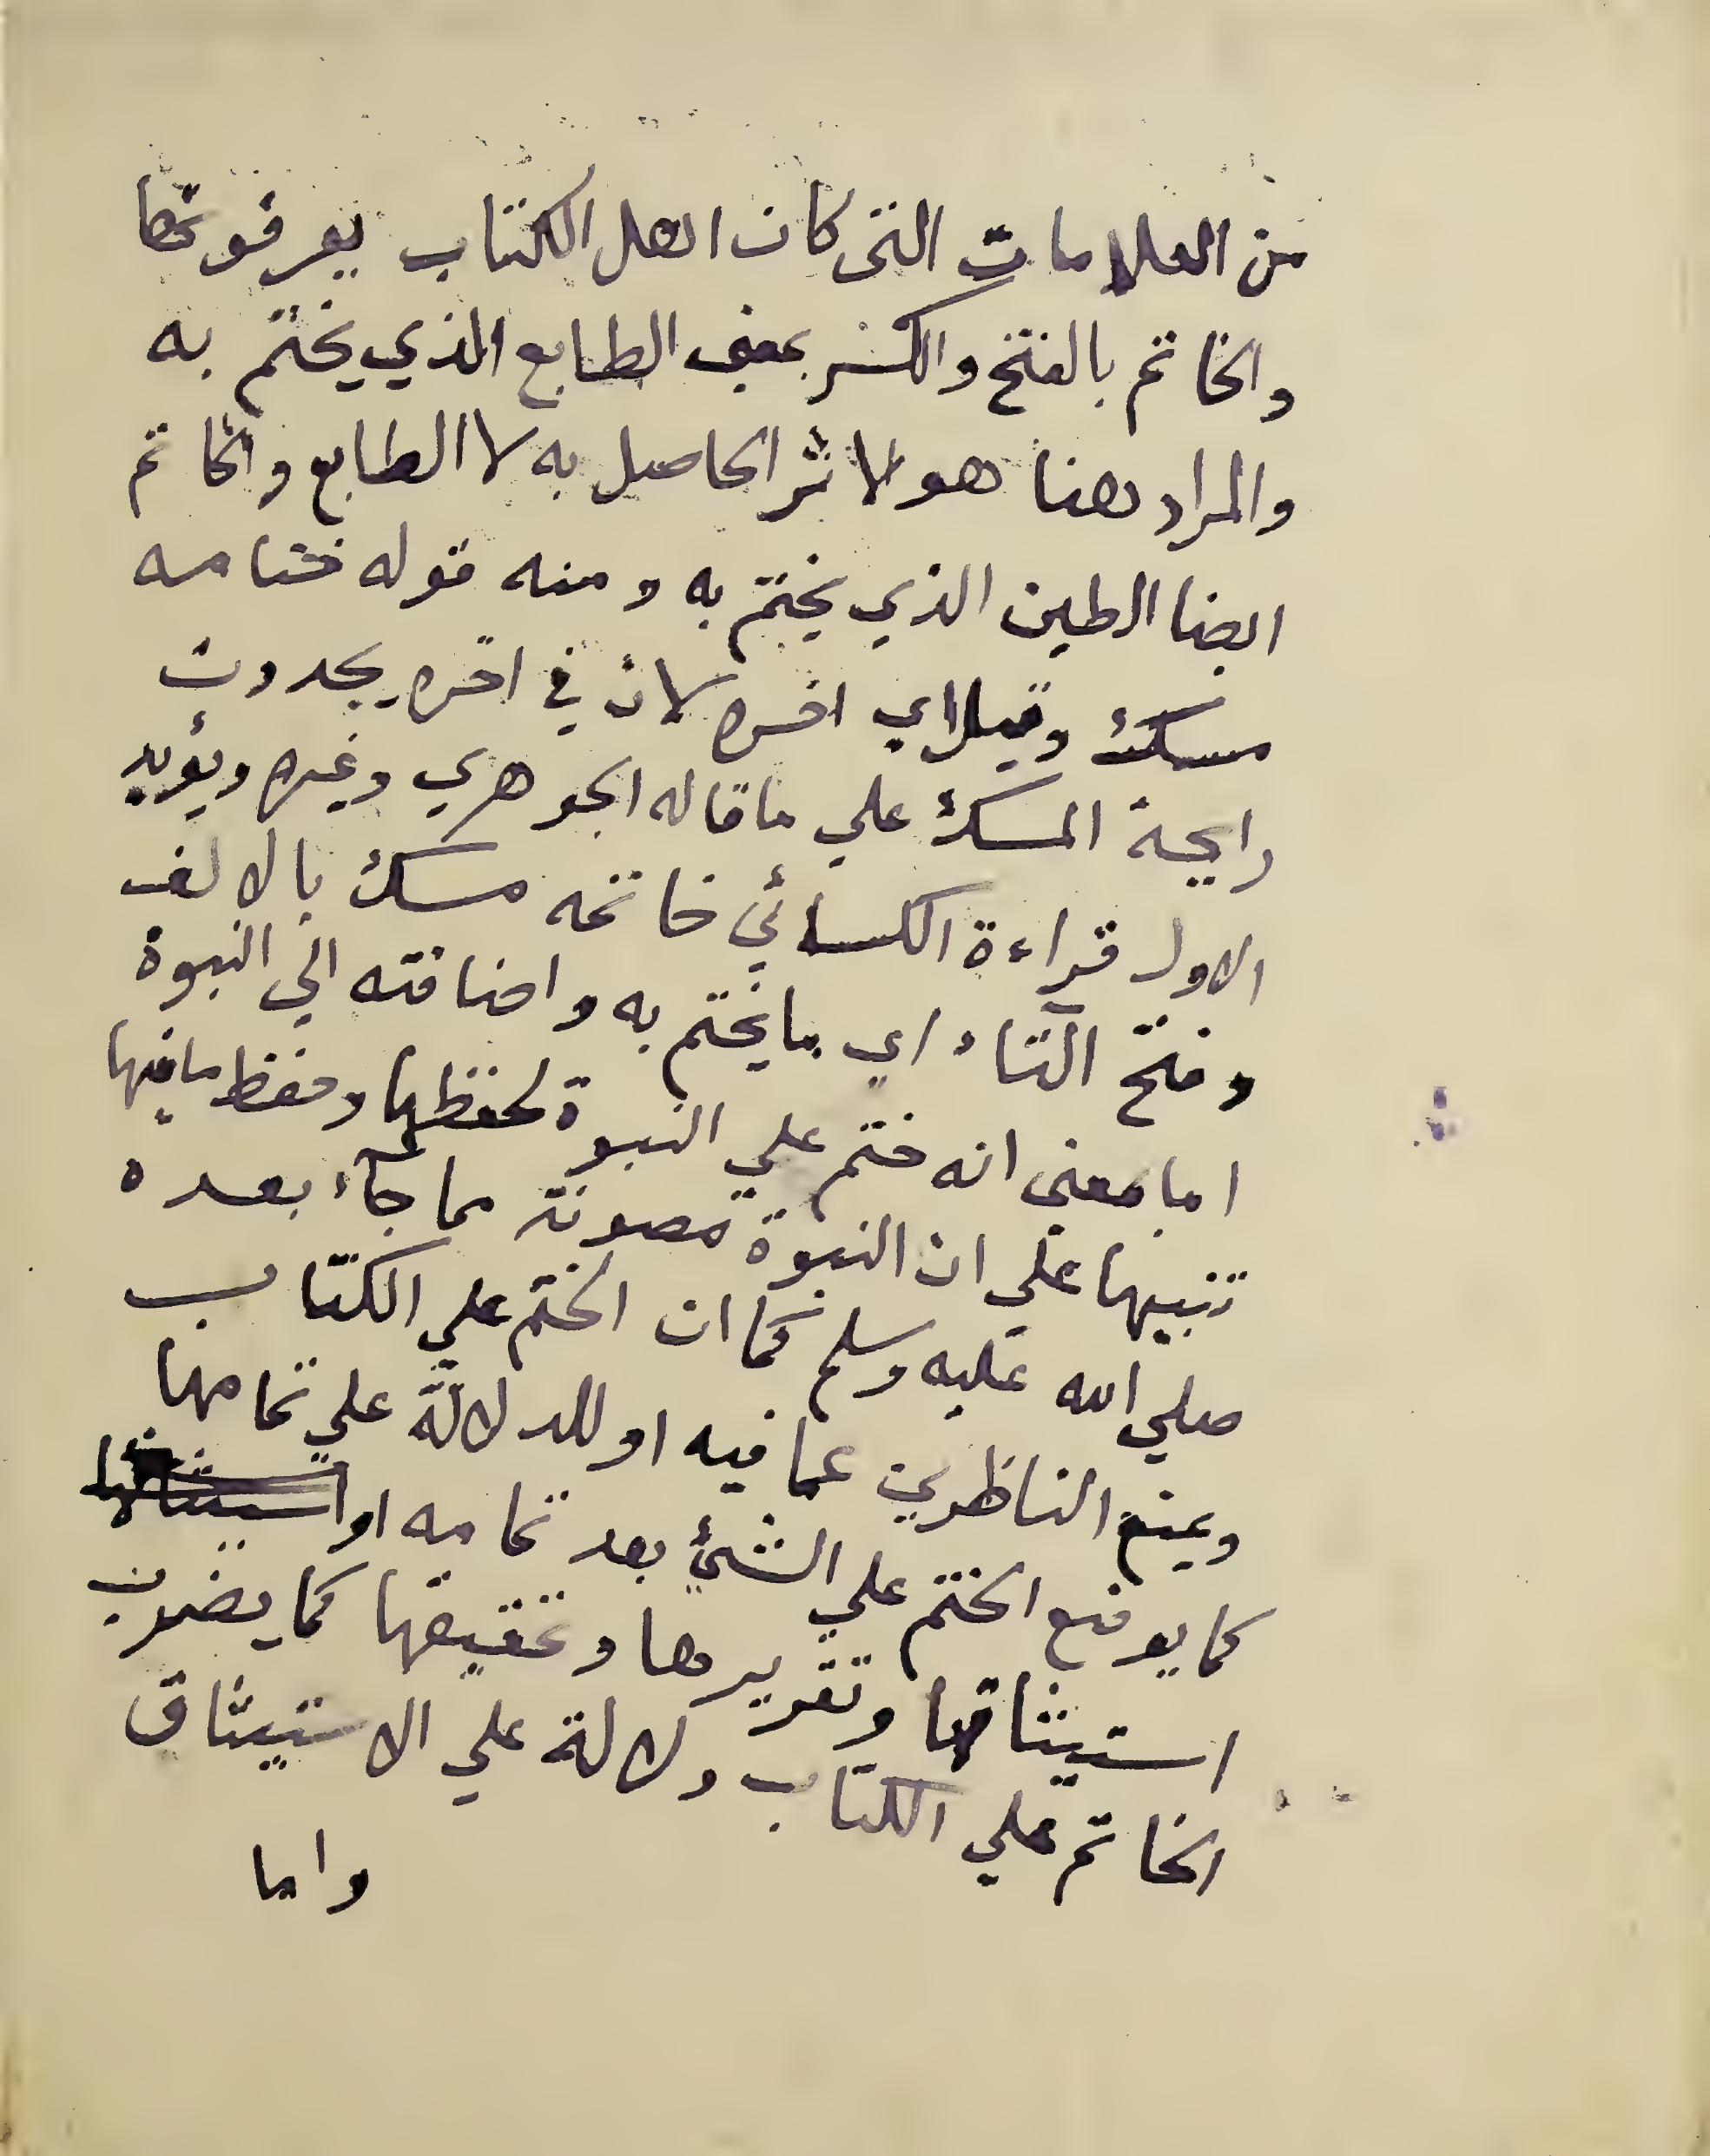 من العلامات التى كان اهل الكتاب يعرفونها
والخاتم بالفتح والكسر بمعنى الطابع الذي يختم به
والمراد هنا هو لاثر الحاصل به لا الطابع والخاتم
ايضا الطين الذي يختم به ومنه قوله ختامه
مسك وقيل اي اخره لان في اخره يجدون
رايحة المسك علي ما قاله الجوهري وغيره ويؤيد
الاول قراءة الكسائي خاتمه مسك بالالف
وفتح التاء اي ما يختم به واضافته الي النبوة
اما بمعنى انه ختم علي النبوة لحفظها وحفظ ما فيها
تنبيها علي ان النبوة مصونة مما جآء بعده
صلي الله عليه وسلم كما ان الختم علي الكتاب
ويمنع الناظرين عما فيه او للدلالة علي تمامها
كما يوضع الختم علي الشئ بعد تمامه او
استيثاقها وتقريرها وتحقيقها كما يضرب
الخاتم علي الكتاب دلالة علي الاستيثاق
واما